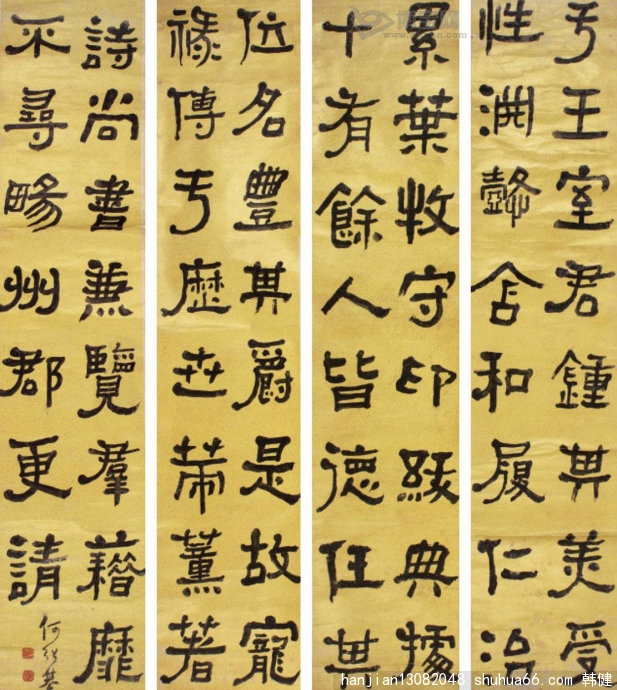 于王室君鍾其美受
性淵懿含和履仁治
累葉牧守印紱典據
十有餘人皆德任其
位名豐其爵是故寵
祿傳于歷世策薰著
詩尚書兼覽羣藉靡
不尋畼州郡更請
何紹基
hanjian13082048 shuhua66.com 韩健